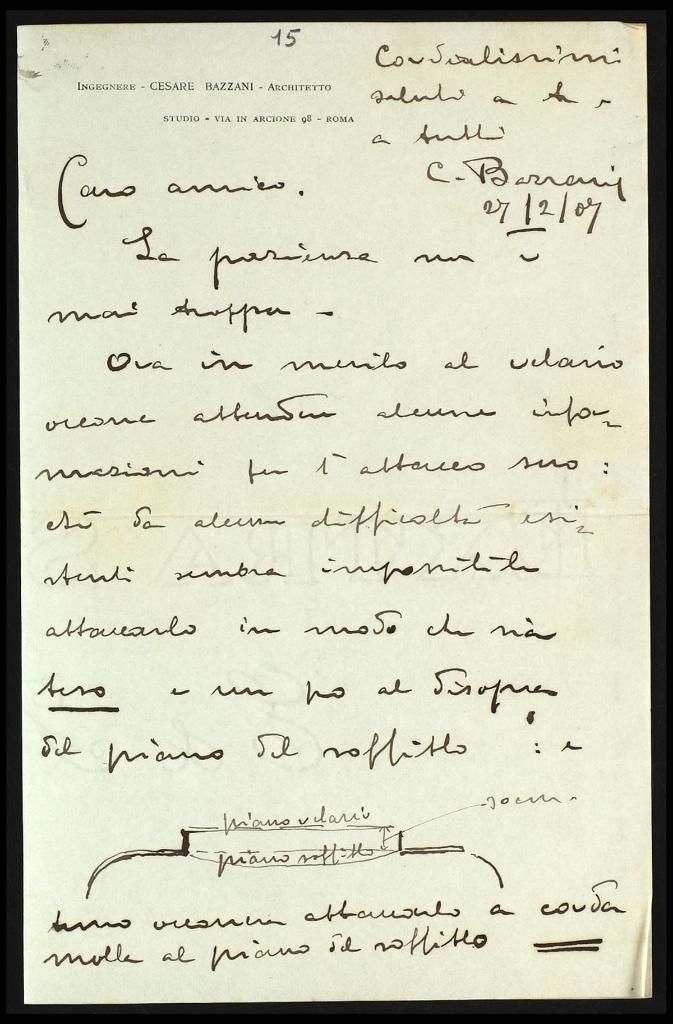 15
INGEGNERE - CESARE BAZZANI - ARCHITETTO
STUDIO - VIA IN ARCIONE 98 - ROMA
Cordialissimi
saluti a te e
a tutti
C. Bazzani
27/2/07
Caro amico.
La pazienza non è
mai troppa -
Ora in merito al velario
occorre attendere alcune infor=
mazioni per l'attacco suo:
chè da alcune difficoltà esi=
stenti sembra impossibile
attaccarlo in modo che sia
teso e un po al disopra
del piano del soffitto : e
piano velario
30 cm.
piano soffitto
occorrerà attaccarlo a corda
molla al piano del soffitto